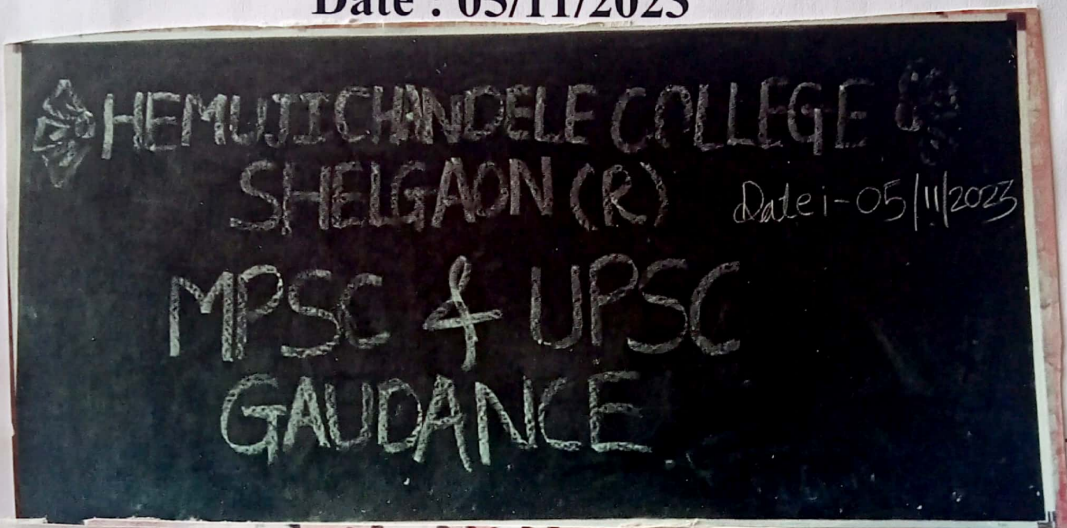 Date : 05/11/2023
HEMUJI CHANDELE COLLEGE
SHELGAON (R)
Date :- 05/11/2023
MPSC & UPSC
GAUDANCE